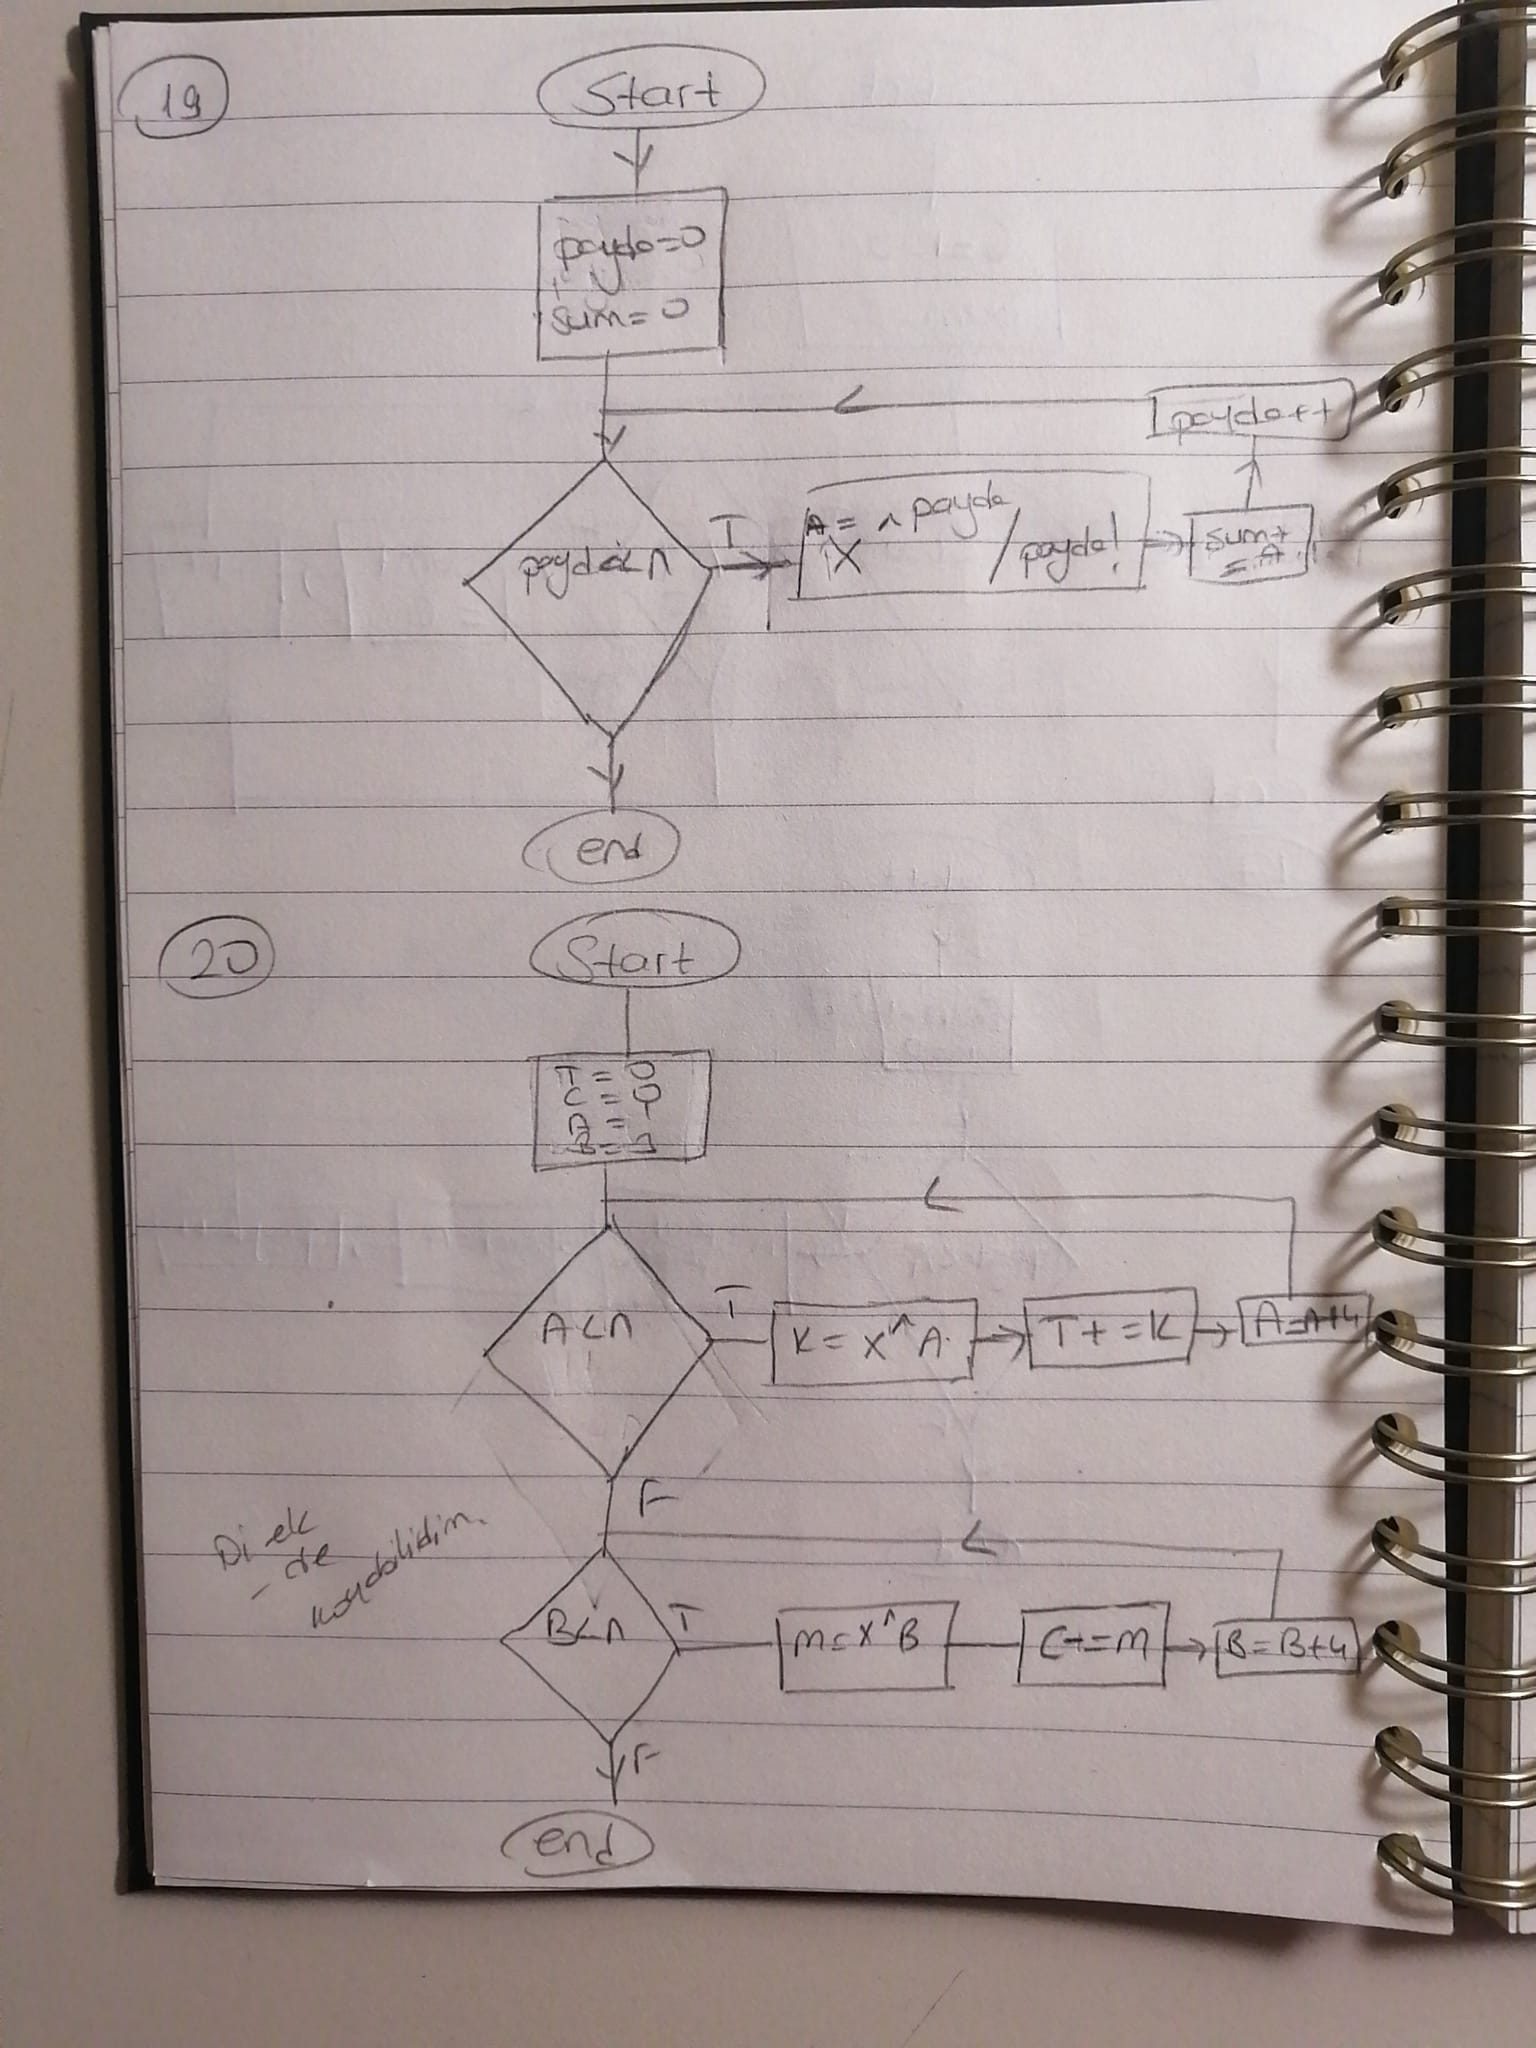 19
Start
payda=0
sum=0
payda++
payda<n
T
A = ^ payda
X /payda!
sum+
= A
end
20
Start
T = 0
C = 0
A = 1
B = 3
A<n
T
K = X^A
T+=K
A=A+4
F
B<n
T
M=X^B
C+=M
B=B+4
F
end